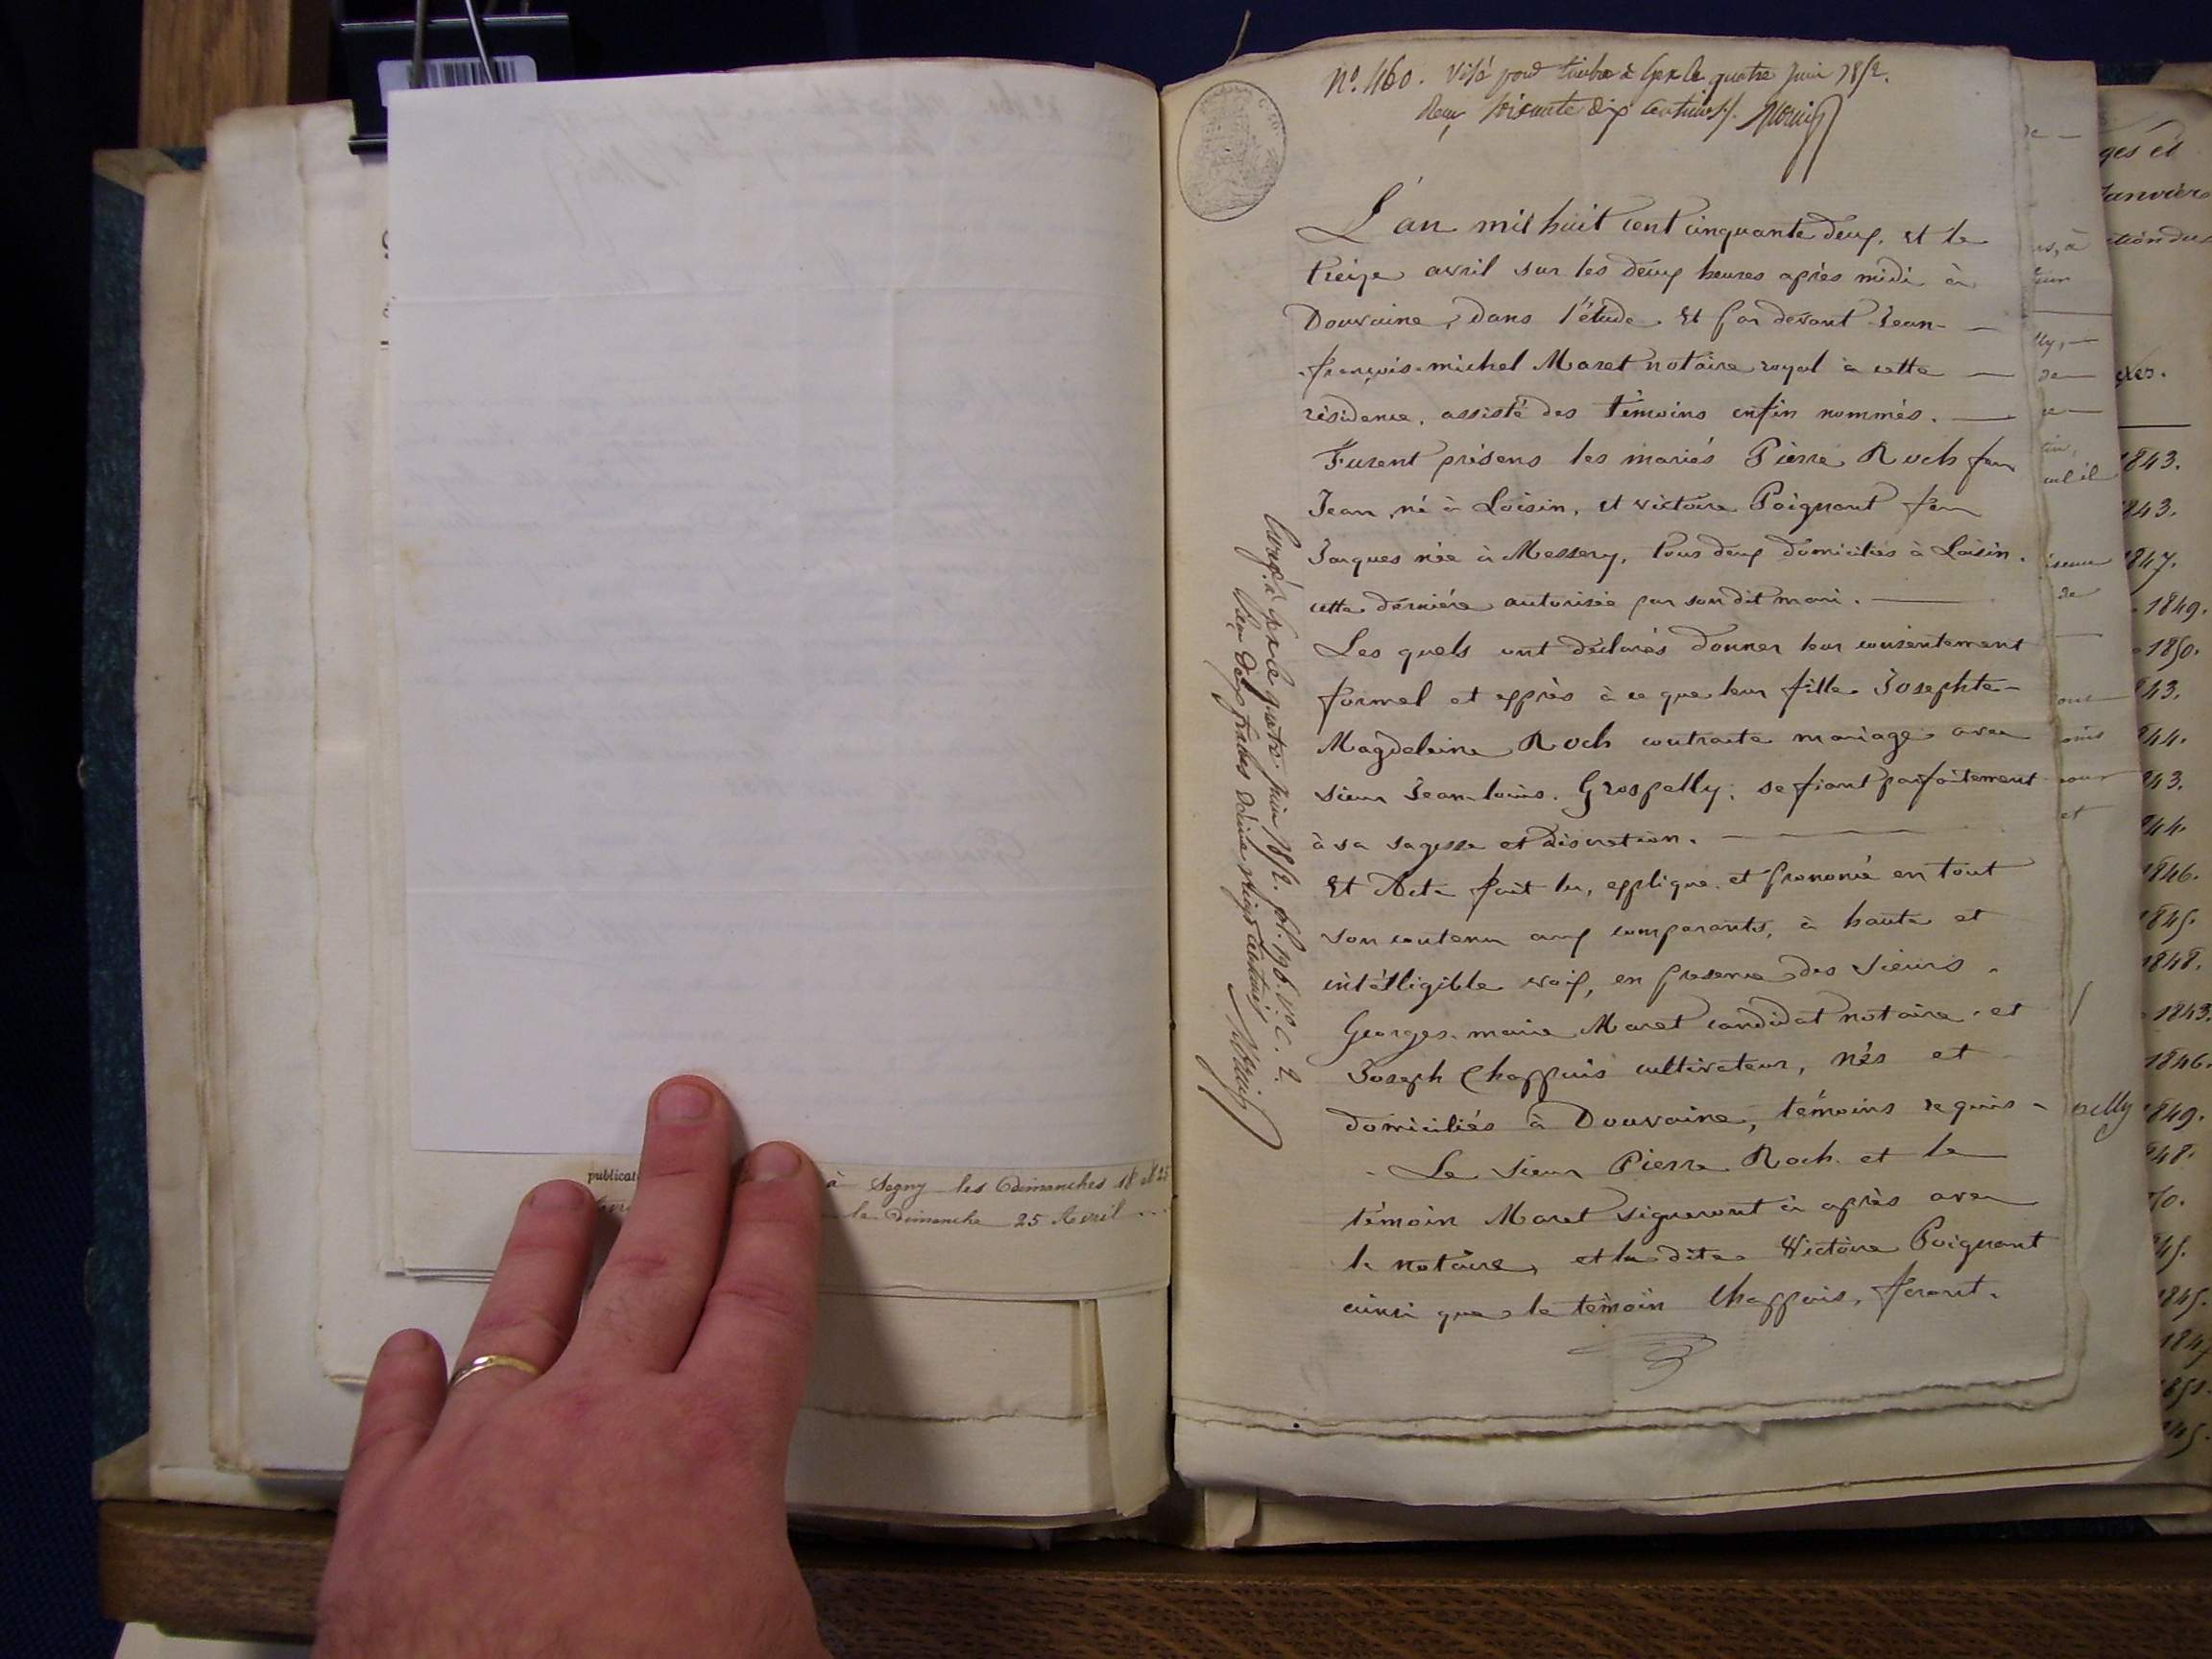 publicat
à Segny les Dimanches 18 et 25
le Dimanche 25 Avril
N.º 460. Visé pour timbre à Gex le quatre Juin 1852.
Reçu soixante dix centimes
L'an mil huit cent cinquante deux, et le
treize avril sur les deux heures après midi à
Douvaine, dans l'étude et par devant Jean-
françois-michel Maret notaire royal à cette
résidence, assisté des témoins enfin nommés.
Furent présens les mariés Pierre Roch feu
Jean, né à Loisin, et victoire Poignant feu
Jacques née à Messery, tous deux domiciliés à Loisin,
cette dernière autorisée par son dit mari.
Les quels ont déclarés donner leur consentement
formel et exprès à ce que leur fille Josephte-
Magdeleine Roch contracte mariage avec
sieur Jean-louis Grospelly, se fiant parfaitement
à sa sagesse et discretion.
Et Acte fait lu, expliqué et prononcé en tout
son contenu aux comparants, à haute et
intélligible voix, en presence des sieurs
Georges-marie Maret candidat notaire et
Joseph Chappuis cultivateur, nés et
domiciliés à Douvaine, témoins requis
Le sieur Pierre Roch et le
témoin Maret signeront ci après avec
le notaire, et la dite Victoire Poignant
ainsi que le témoin Chappuis, feront.
Enregé à Gex le quatre juin 1852. fol. 196. Vº C. 2.
Reçu deux francs décime vingt centimes
ges et
Janvier
1843.
1843.
1847.
1849.
1850.
1843.
1844.
1843.
1844.
1846.
1845.
1848.
1843.
1846.
pelly 1849.